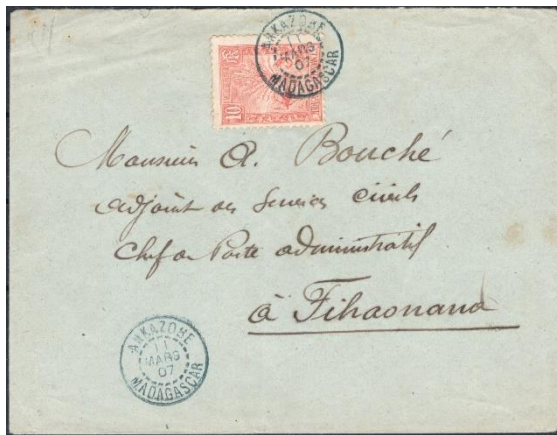 ANKAZOBE
11
MARS
07
MADAGASCAR
10
Monsieur A. Bouché
Adjoint des Services civils
Chef de Poste administratif
à Fihaonana
ANKAZOBE
11
MARS
07
MADAGASCAR